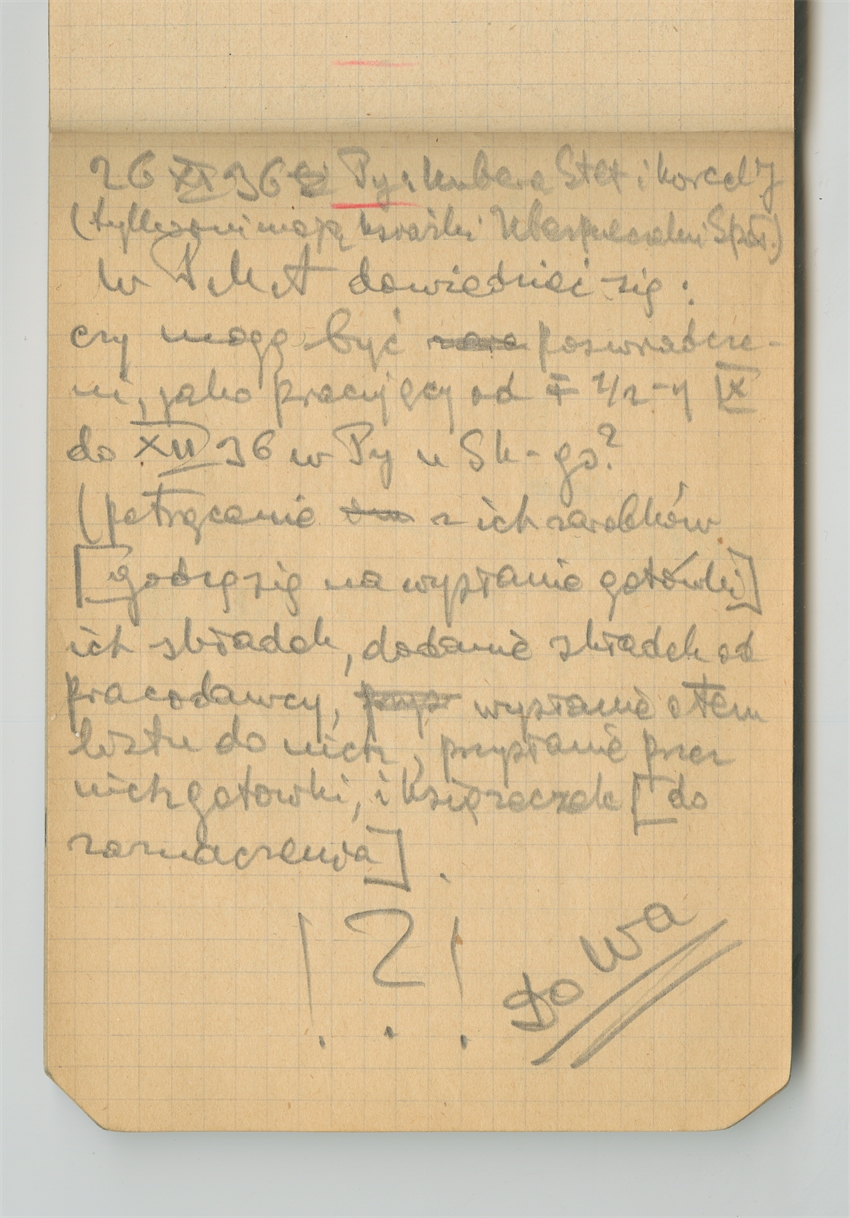 26 XI 36 Py: Kubera Stef i Korcel J
(tylko oni mają książki Ubezpieczalni Społ.)
W PMA dowiedzieć się:
czy mogą być poświadcze-
ni, jako pracujący od 1/2-y IX
do XII 36 w Py u Sk-go?
(potrącenie z ich zarobków
[godzą się na wysłanie gotówki]
ich składek, dodanie składek od
pracodawcy, wysłanie o tem
listu do nich, przysłanie przez
nich gotówki, i książeczek [do
zaznaczenia].
! ? !
Do Wa